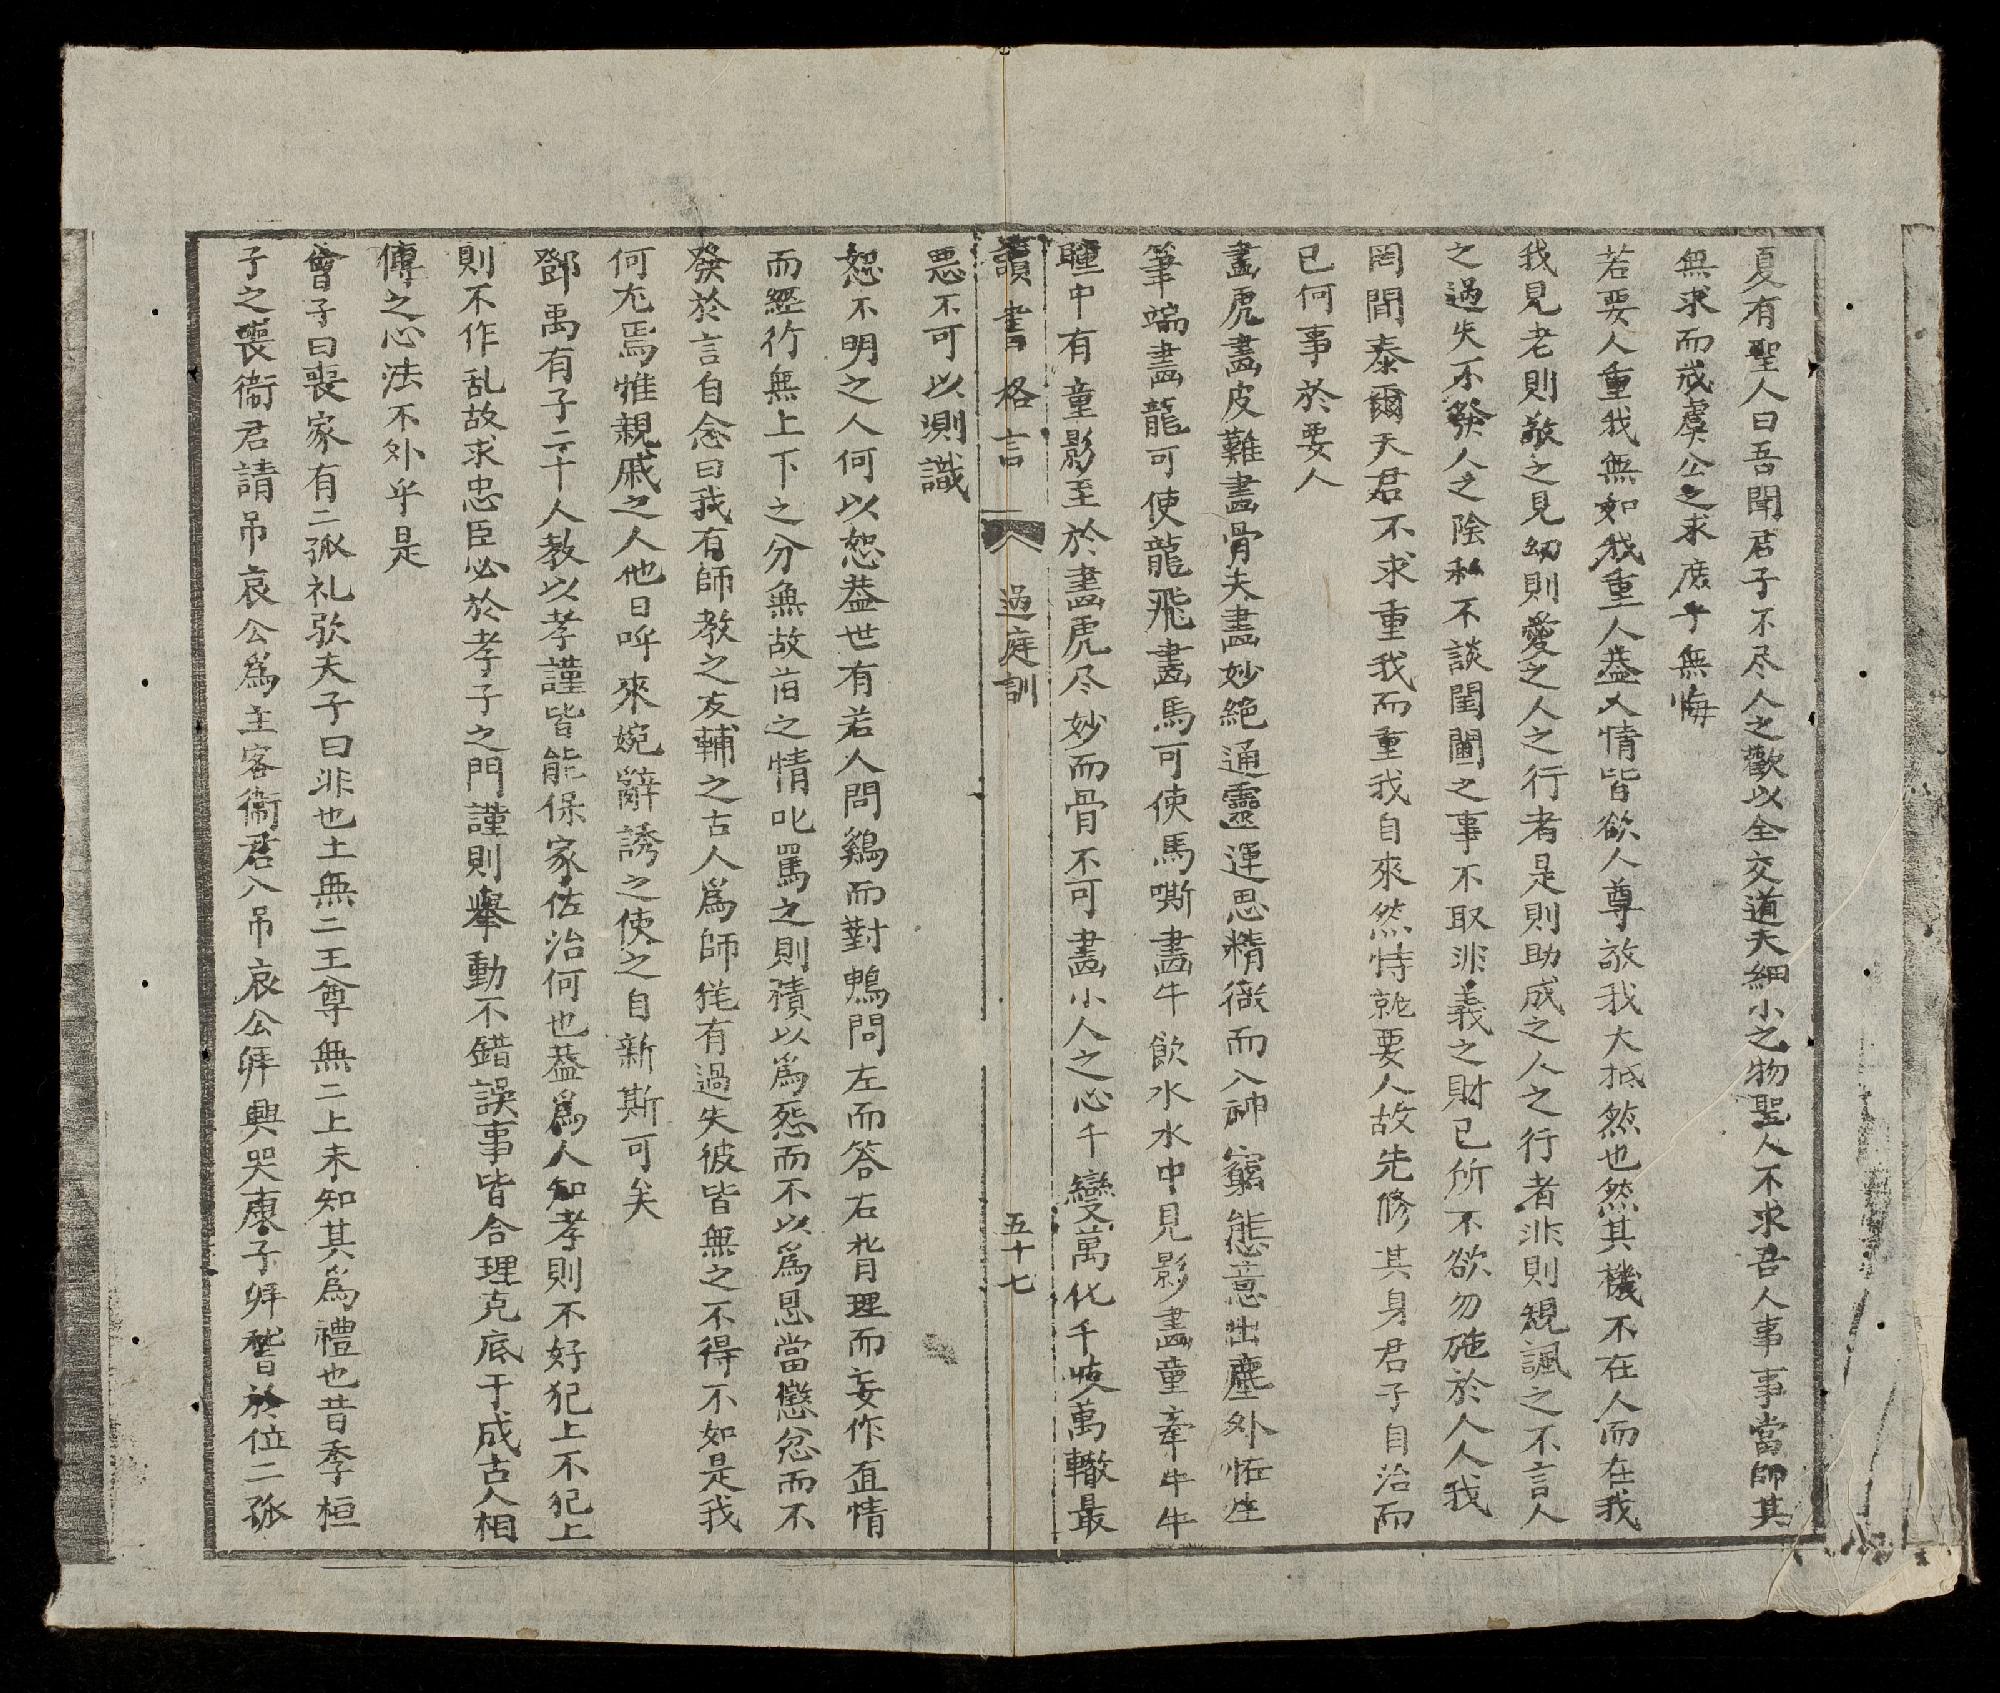 夏有聖人曰吾聞君子不尽人之歡以全交道夫細小之物聖人不求吾人事事當師其
無求而戒虞公之求庶乎無悔
若要人重我無如我重人盖人情皆欲人尊敬我大抵然也然其機不在人而在我
我見老則敬之見幼則愛之人之行者是則助成之人之行者非則規諷之不言人
之過失不發人之陰私不談閨閫之事不取非義之財已所不欲勿施於人人我
罔間泰爾天君不求重我而重我自來然恃就要人故先修其身君子自治而
已何事於要人
畵虎畵皮難畵骨夫畵妙絶通靈運思精微而入神窮態意出塵外恠生
筆端畵龍可使龍飛畵馬可使馬嘶畵牛飲水水中見影畵童牽牛牛
瞳中有童影至於畵虎尽妙而骨不可畵小人之心千變萬化千岐萬轍最
讀書格言 過庭訓 五十七
悪不可以測識
恕不明之人何以恕盖世有若人問鷄而對鴨問左而答右背理而妄作直情
而經行無上下之分無故旧之情叱罵之則積以爲怨而不以爲恩當懲忿而不
發於言自念曰我有師教之友輔之古人爲師㹠有過失彼皆無之不得不如是我
何尤焉惟親戚之人他日呼來婉辭誘之使之自新斯可矣
鄧禹有子二十人教以孝謹皆能保家佐治何也盖爲人知孝則不好犯上不犯上
則不作乱故求忠臣必於孝子之門謹則舉動不錯誤事皆合理克底于成古人相
傳之心法不外乎是
曾子曰喪家有二孤礼欤夫子曰非也土無二王尊無二上未知其爲禮也昔季桓
子之喪衞君請吊哀公爲主客衞君入吊哀公拜興哭康子拜稽於位二孤